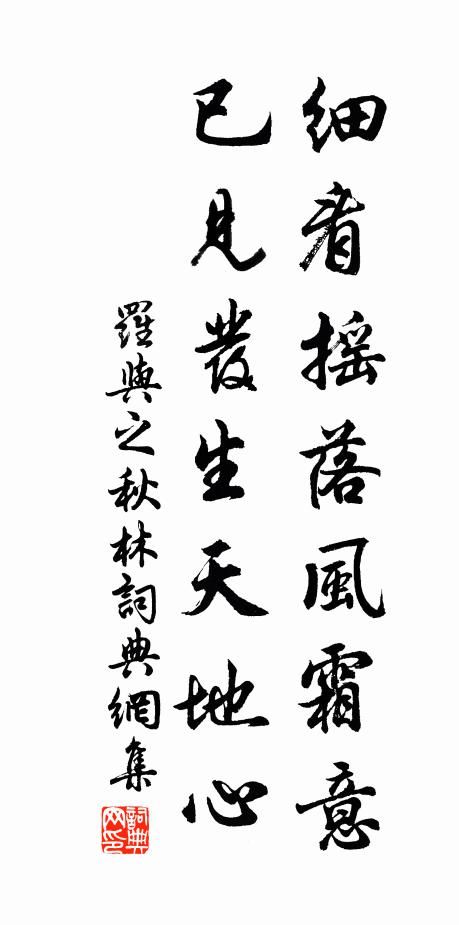 细看摇落風霜意
已見發生天地心
羅與之秋林詞典網集
詞典网印